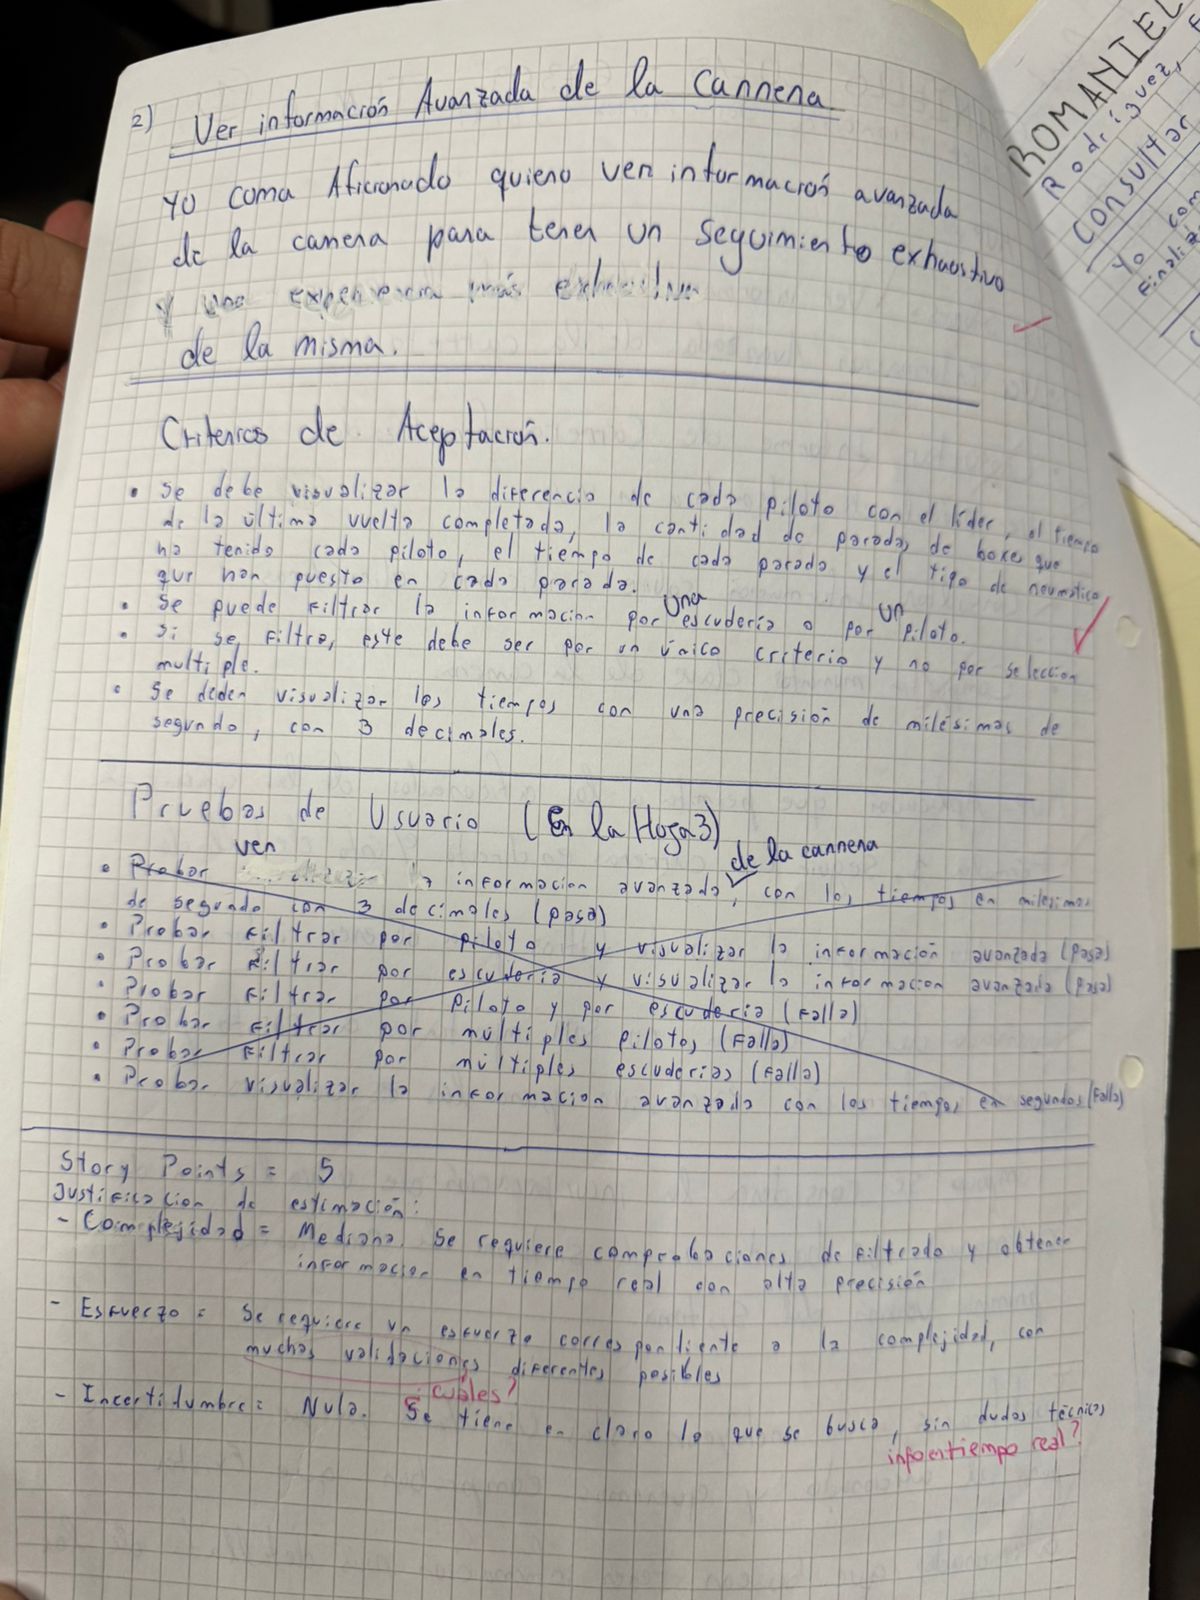 2) Ver información Avanzada de la Carrera
Yo como Aficionado quiero ver información avanzada
de la carrera para tener un seguimiento exhaustivo
y una experiencia más
de la misma.
Criterios de Aceptación.
• Se debe visualizar la diferencia de cada piloto con el líder, el tiempo
de la última vuelta completada, la cantidad de paradas de boxes que
ha tenido cada piloto, el tiempo de cada parada y el tipo de neumatico
que han puesto en cada parada.
• Se puede filtrar la informacion por una escuderia o por un piloto.
• Si se filtra, este debe ser por un único criterio y no por seleccion
multiple.
• Se deden visualizar los tiempos con una precisión de milésimas de
segundo, con 3 decimales.
Pruebas de Usuario (En la Hoja 3)
• Probar ver la informacion avanzada de la carrera, con los tiempos en milesimas
de segundo con 3 decimales (pasa)
• Probar filtrar por piloto y visualizar la información avanzada (pasa)
• Probar filtrar por escuderia y visualizar la informacion avanzada (pasa)
• Probar filtrar por piloto y por escuderia (falla)
• Probar filtrar por múltiples pilotos (falla)
• Probar filtrar por múltiples escuderias (falla)
• Probar visualizar la informacion avanzada con los tiempos en segundos (falla)
Story Points = 5
Justificacion de estimación:
- Complejidad = Mediana. Se requiere comprobaciones de filtrado y obtener
informacion en tiempo real con alta precisión
- Esfuerzo = Se requiere un esfuerzo correspondiente a la complejidad, con
muchas validaciones diferentes posibles
¿cuáles?
- Incertidumbre = Nula. Se tiene en claro lo que se busca, sin dudas técnicas
info en tiempo real?
ROMANIEL
Rodríguez,
Consultar
Yo com
finaliza